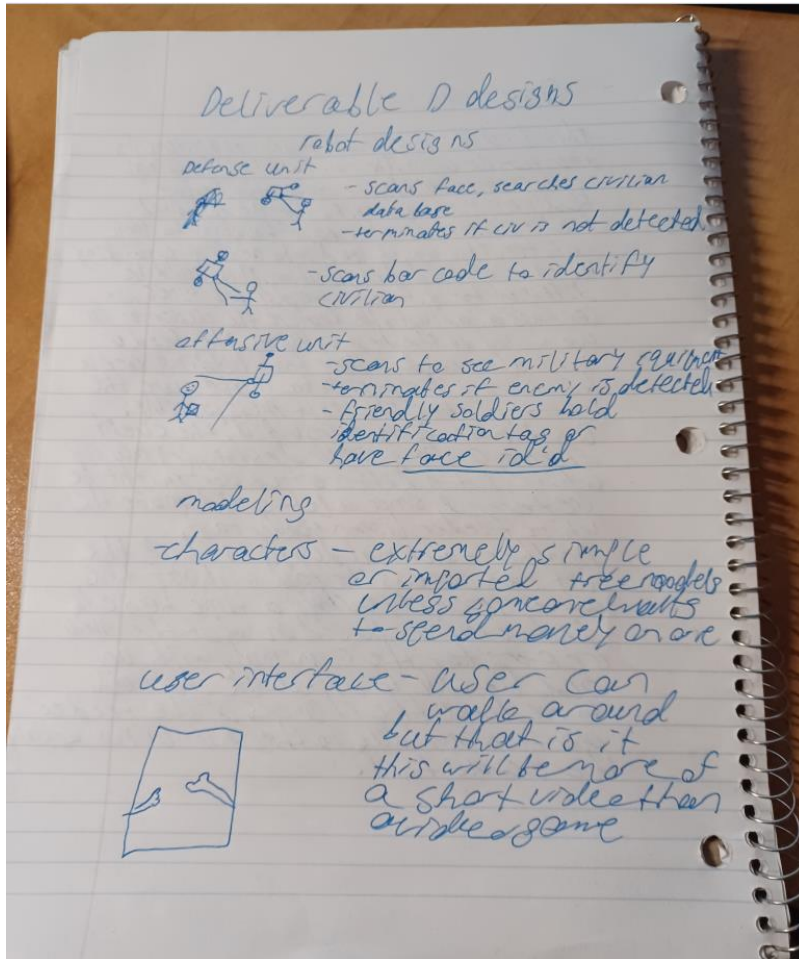 Deliverable D designs
robot designs
Defense unit
- scans face, searches civilian
data base
- terminates if civ is not detected
- scans bar code to identify
civilian
offensive unit
- scans to see military equipment
- terminates if enemy is detected
- friendly soldiers hold
identification tag or
have face id'd
modeling
- characters - extremely simple
or imported free models
unless someone wants
to spend money on one
user interface - user can
walk around
but that is it
this will be more of
a short video than
a video game